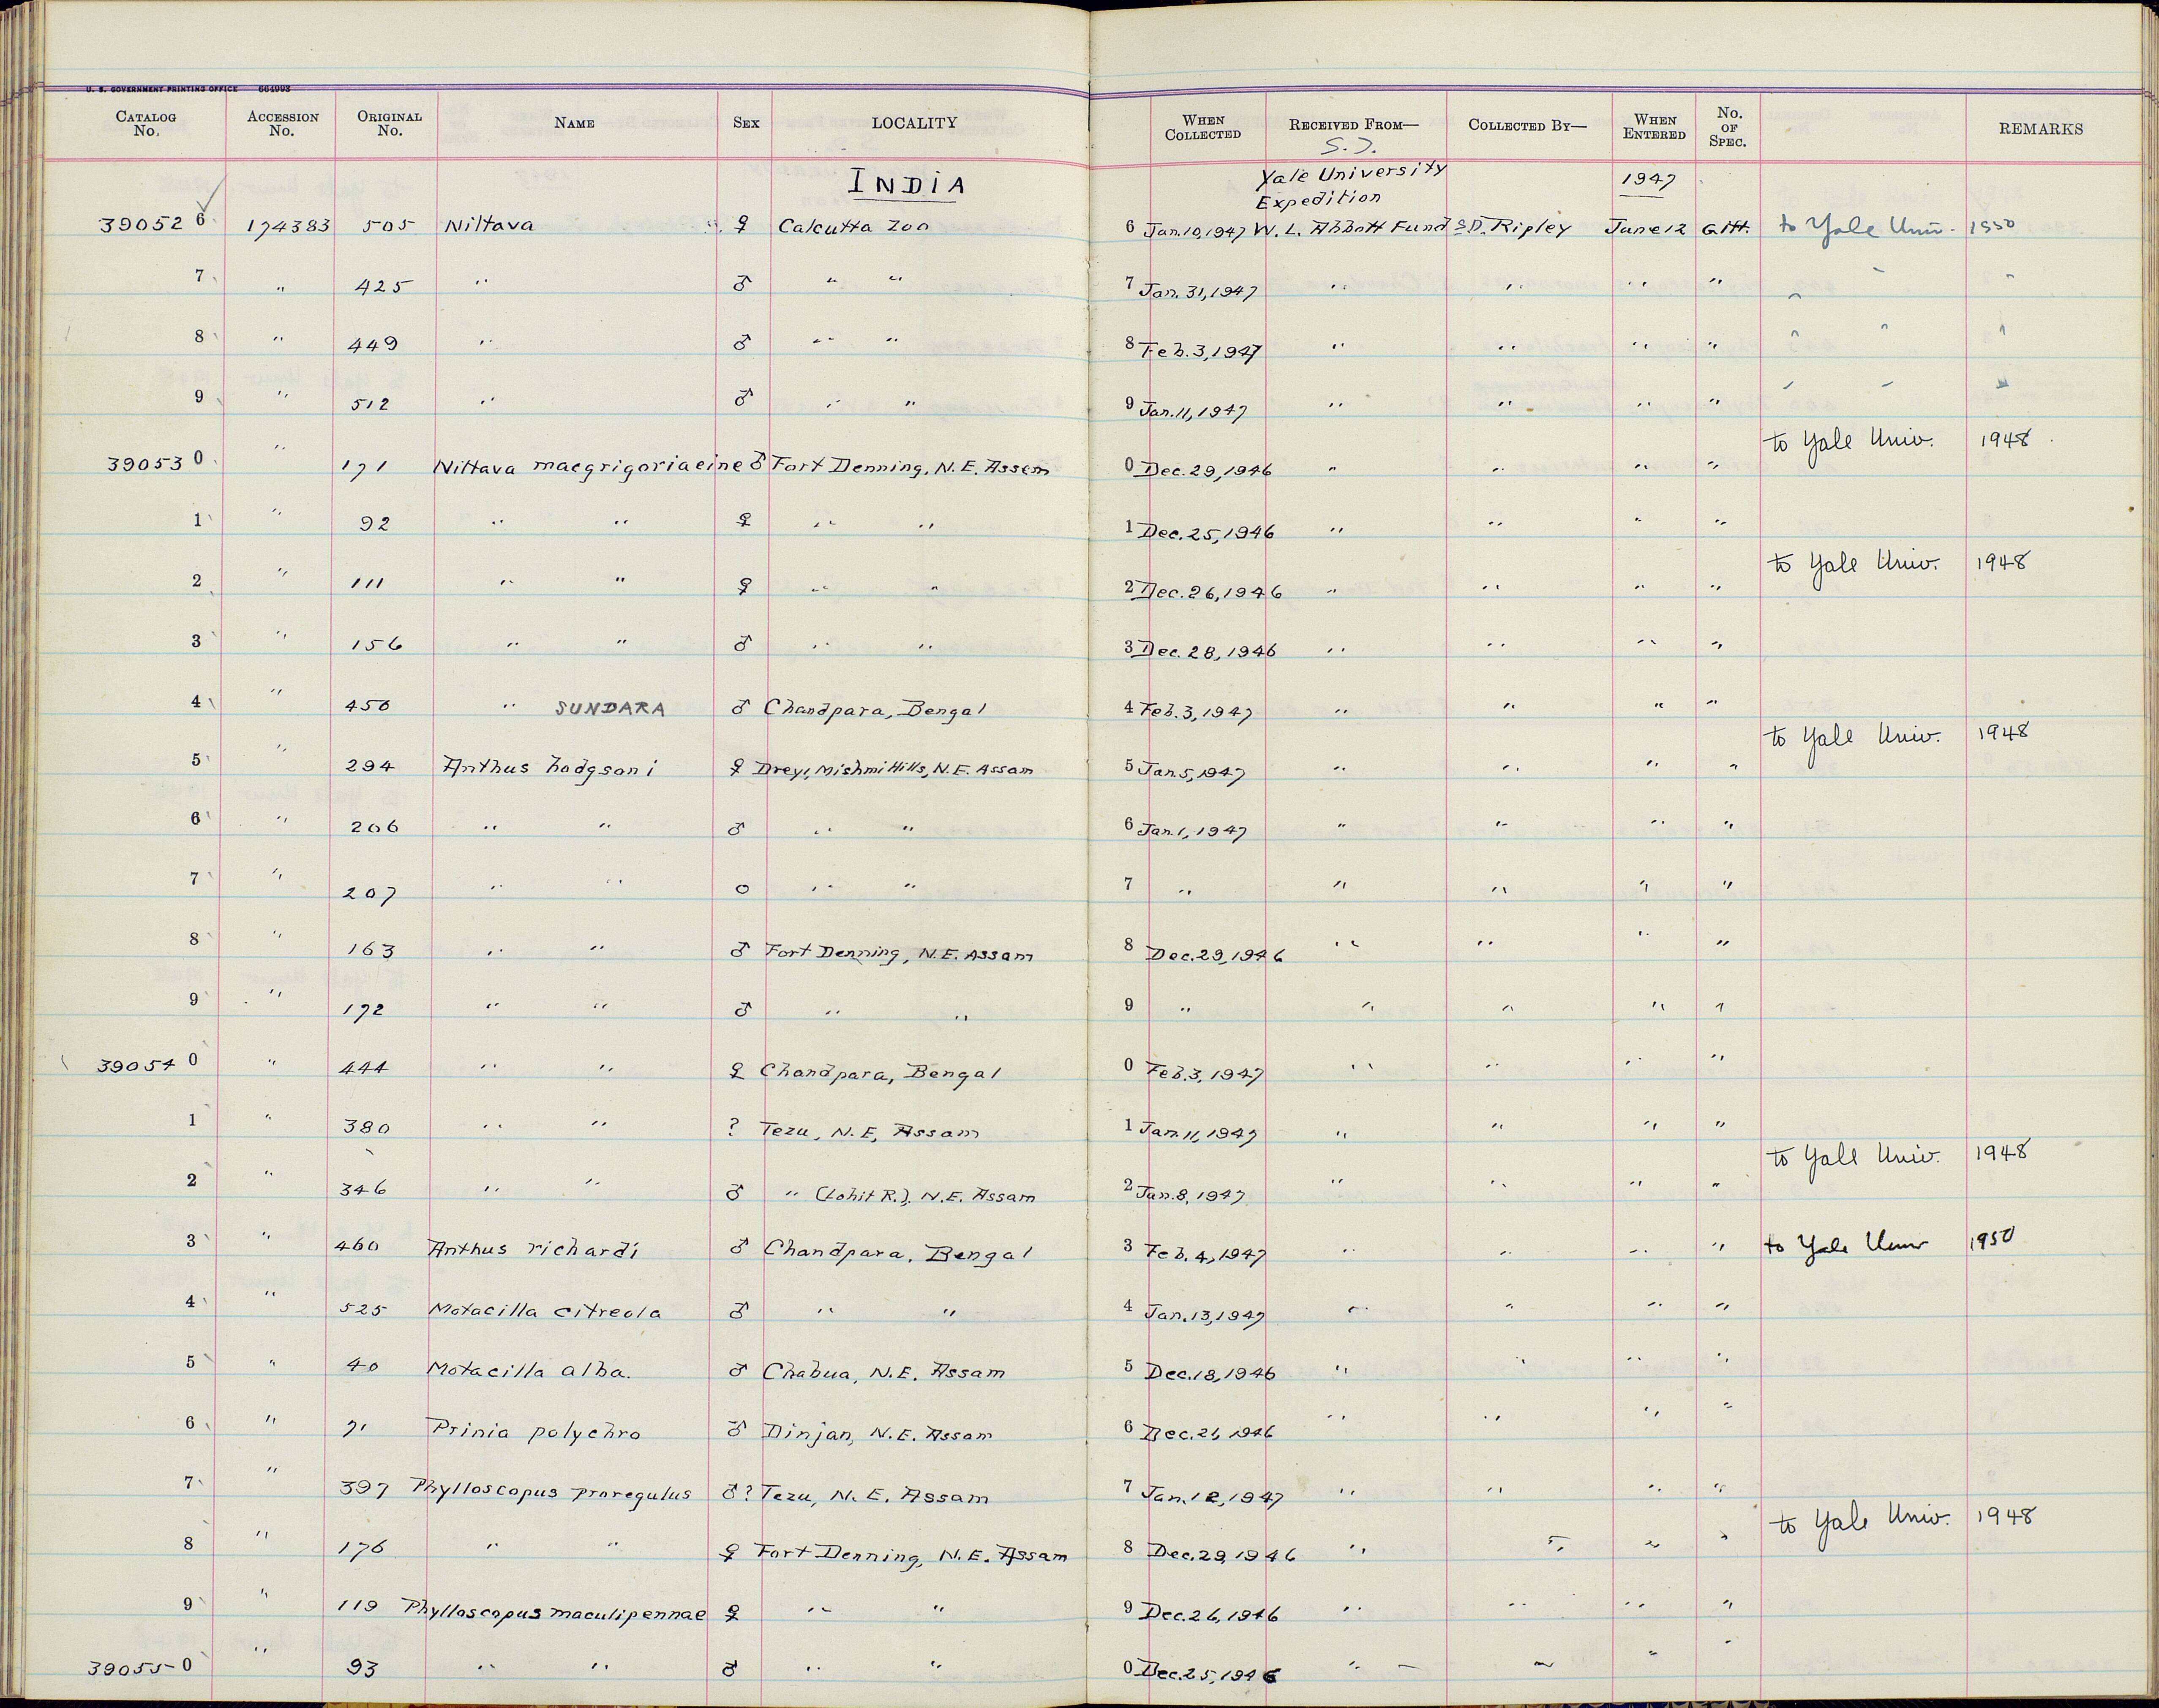 U. S. GOVERNMENT PRINTING OFFICE 664993
CATALOG No. ACCESSION No. ORIGINAL No. NAME SEX LOCALITY WHEN COLLECTED RECEIVED FROM— COLLECTED BY— WHEN ENTERED No. OF SPEC. REMARKS
INDIA Yale University Expedition 1947
390526 174383 505 Niltava ♀ Calcutta Zoo 6 Jan. 10, 1947 W. L. Abbott Fund S.D. Ripley June 12 Gift. to Yale Univ. 1950
7 " 425 " ♂ " " 7 Jan. 31, 1947 " " " " " " "
8 " 449 " ♂ " " 8 Feb. 3, 1947 " " " " " " "
9 " 512 " ♂ " " 9 Jan. 11, 1947 " " " " " "
390530 " 171 Niltava macgrigoriaeine ♂ Fort Denning, N.E. Assam 0 Dec. 29, 1946 " " " " to Yale Univ. 1948
1 " 92 " " ♀ " " 1 Dec. 25, 1946 " " " "
2 " 111 " " ♀ " " 2 Dec. 26, 1946 " " " " to Yale Univ. 1948
3 " 156 " " ♂ " " 3 Dec. 28, 1946 " " " "
4 " 450 " SUNDARA ♂ Chandpara, Bengal 4 Feb. 3, 1947 " " " "
5 " 294 Anthus hodgsoni ♀ Dreyi, Mishmi Hills, N.E. Assam 5 Jan. 5, 1947 " " " " to Yale Univ. 1948
6 " 206 " " ♂ " " 6 Jan. 1, 1947 " " " "
7 " 207 " " o " " 7 " " " " "
8 " 163 " " ♂ Fort Denning, N.E. Assam 8 Dec. 29, 1946 " " " "
9 " 172 " " ♂ " " 9 " " " " "
390540 " 444 " " ♀ Chandpara, Bengal 0 Feb. 3, 1947 " " " "
1 " 380 " " ? Tezu, N.E. Assam 1 Jan. 11, 1947 " " " "
2 " 346 " " ♂ " (Lohit R.), N.E. Assam 2 Jan. 8, 1947 " " " " to Yale Univ. 1948
3 " 460 Anthus richardi ♂ Chandpara, Bengal 3 Feb. 4, 1947 " " " " to Yale Univ 1950
4 " 525 Motacilla citreola ♂ " " 4 Jan. 13, 1947 " " " "
5 " 40 Motacilla alba. ♂ Chabua, N.E. Assam 5 Dec. 18, 1946 " " " "
6 " 71 Prinia polychro ♂ Dinjan, N.E. Assam 6 Dec. 21, 1946 " " " "
7 " 397 Phylloscopus proregulus ♂? Tezu, N.E. Assam 7 Jan. 12, 1947 " " " "
8 " 176 " " ♀ Fort Denning, N.E. Assam 8 Dec. 29, 1946 " " " " to Yale Univ. 1948
9 " 119 Phylloscopus maculipennae ♀ " " 9 Dec. 26, 1946 " " " "
390550 " 93 " " ♂ " " 0 Dec. 25, 1946 " " " "